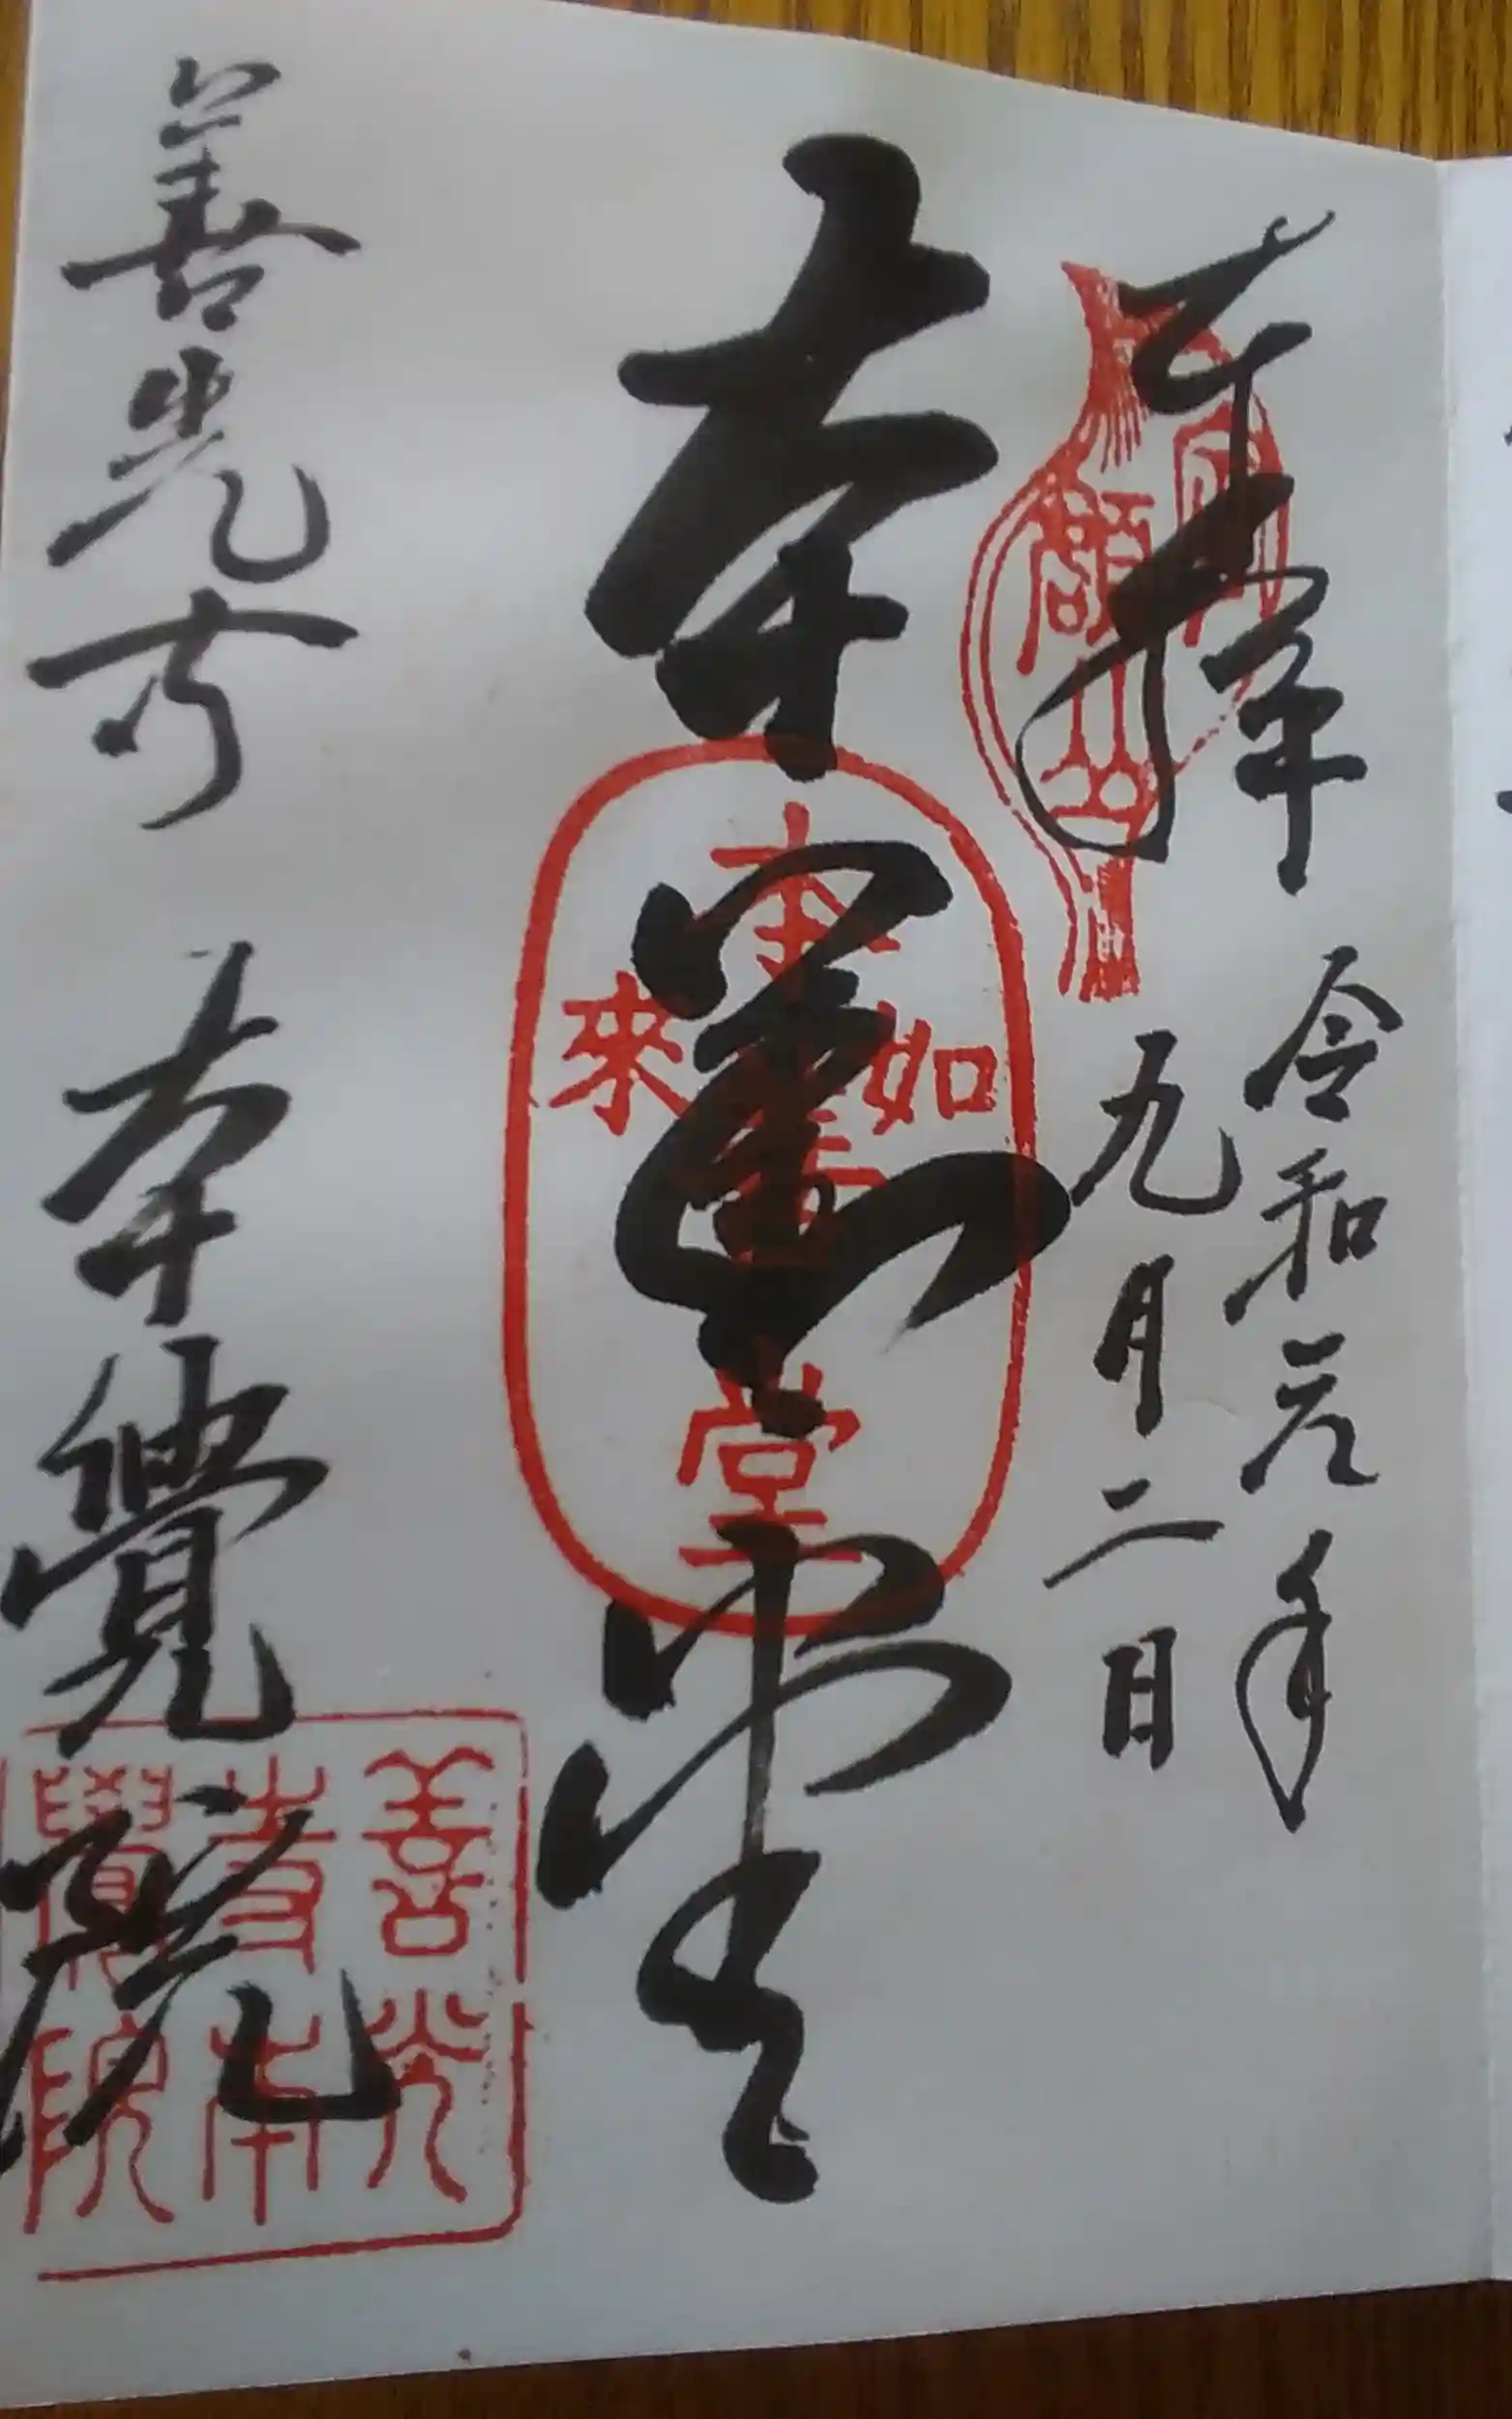 奉拝 令和元年
九月二日
定額山
本 堂
本 堂
如來
善光寺 本覺院
善光
寺本
覺院